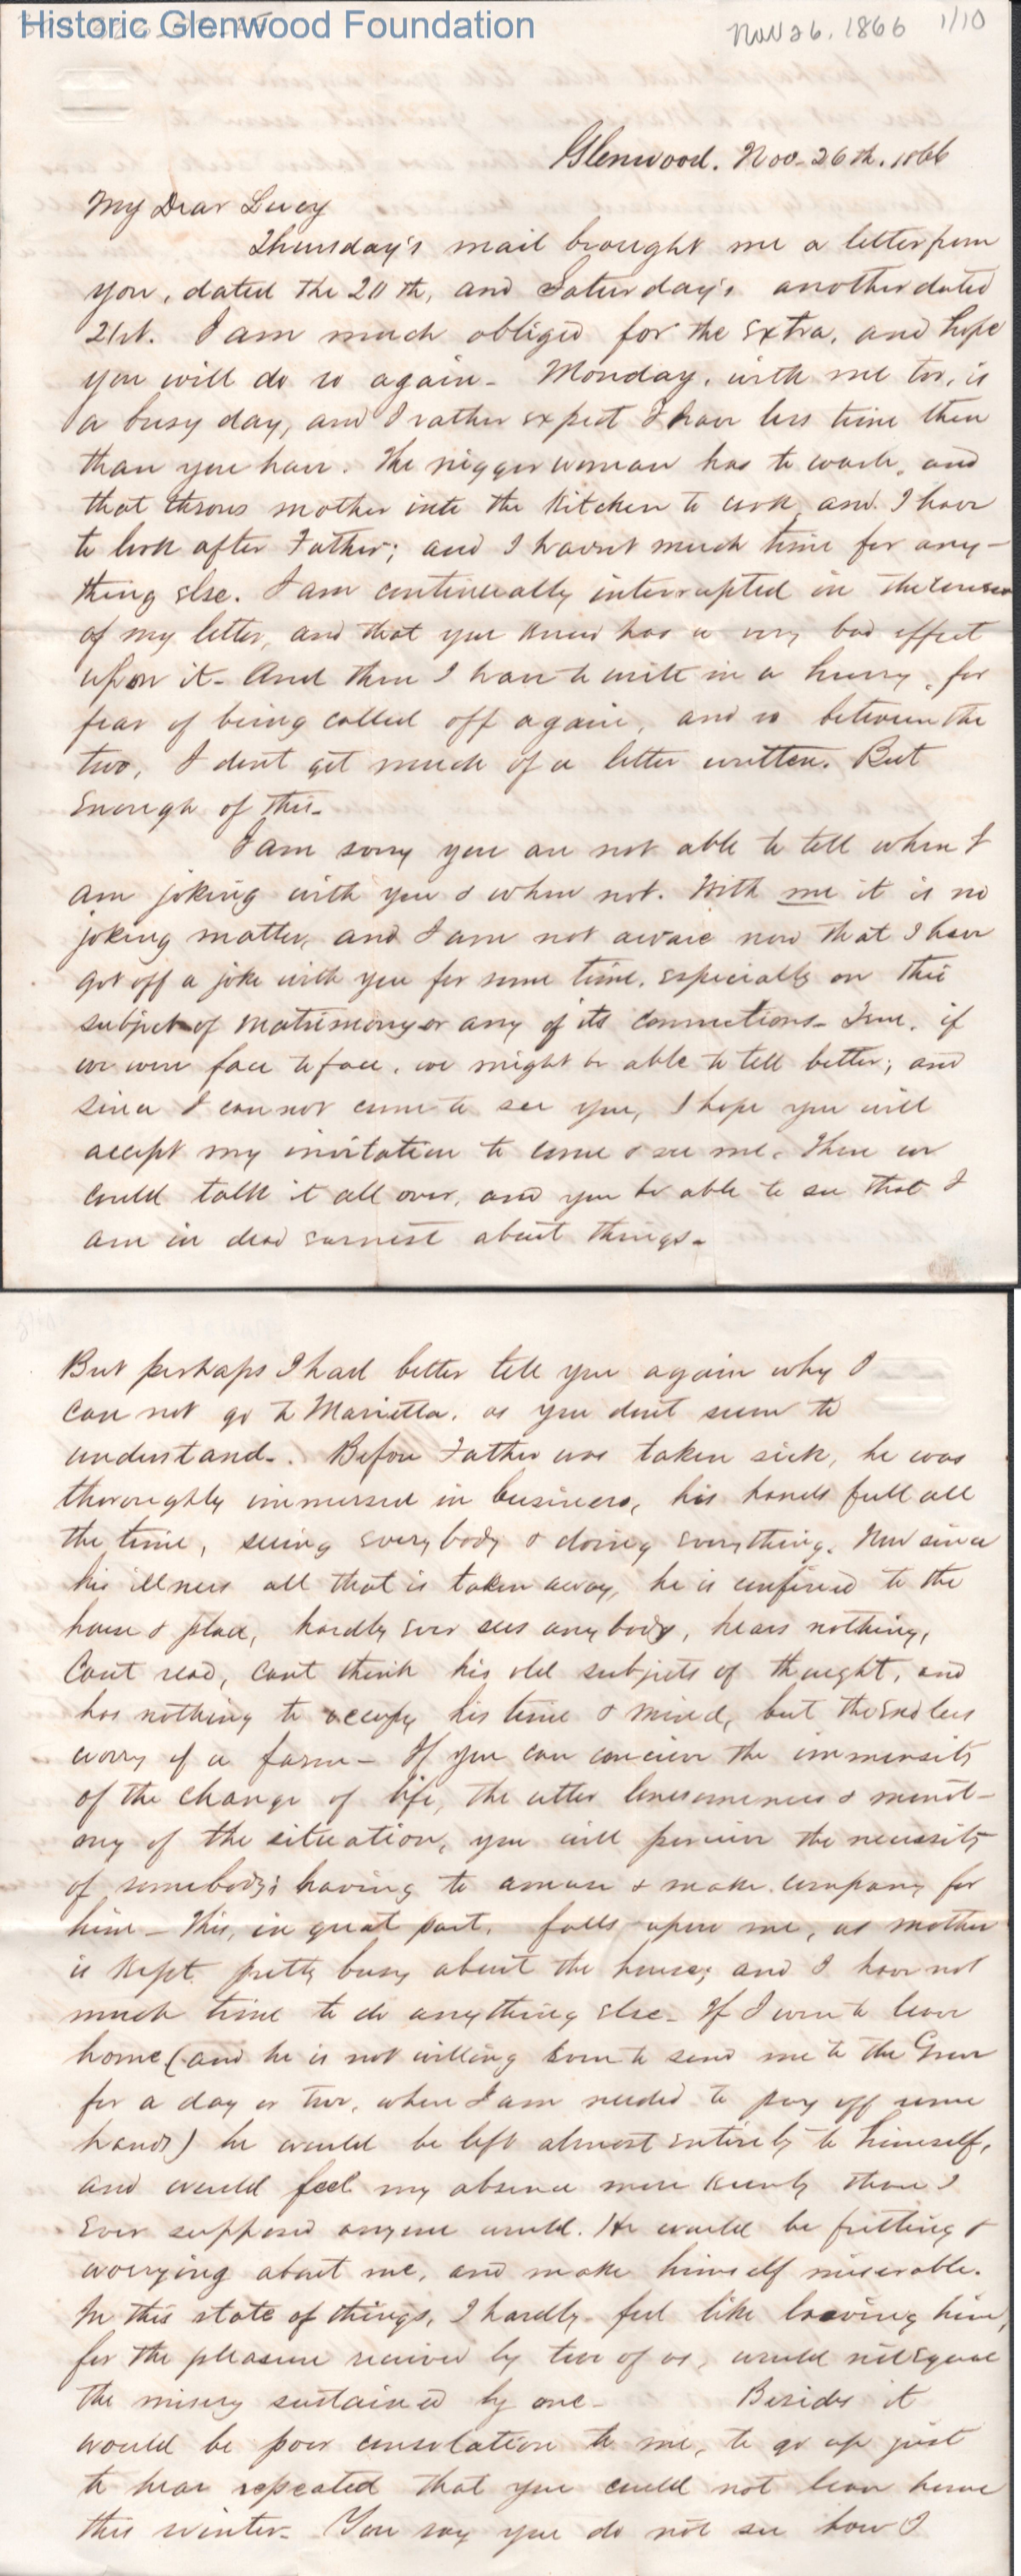 Historic Glenwood Foundation
Nov 26, 1866 1/10
Glenwood. Nov. 26th. 1866
My Dear Lucy
Thursday's mail brought me a letter from
you, dated the 20th, and Saturday's another dated
21st. I am much obliged for the extra, and hope
you will do so again - Monday, with me too, is
a busy day, and I rather expect I have less time then
than you have. The nigger woman has to wash, and
that throws mother into the kitchen to cook and I have
to look after Father; and I havent much time for any-
thing else. I am continually interrupted in the course
of my letter, and that you know has a very bad effect
upon it - And then I have to write in a hurry, for
fear of being called off again, and so between the
two, I dont get much of a letter written. But
enough of this -
I am sorry you are not able to tell when I
am joking with you & when not. With me it is no
joking matter, and I am not aware now that I have
got off a joke with you for some time, especially on the
subject of matrimony or any of its connections - True, if
we were face to face, we might be able to tell better; and
since I can not come to see you, I hope you will
accept my invitation to come & see me. Then we
could talk it all over, and you be able to see that I
am in dead earnest about things -
But perhaps I had better tell you again why I
can not go to Marietta, as you dont seem to
understand - Before Father was taken sick, he was
thoroughly immersed in business, his hands full all
the time, seeing everybody & doing everything. Now since
his illness all that is taken away, he is confined to the
house & place, hardly ever sees anybody, hears nothing,
cant read, cant think his old subjects of thought, and
has nothing to occupy his time & mind, but the endless
worry of a farm - If you can conceive the immensity
of the change of life, the utter lonesomeness & monot-
ony of the situation, you will perceive the necessity
of somebody's having to amuse & make company for
him - This, in great part, falls upon me, as mother
is kept pretty busy about the house; and I have not
much time to do anything else - If I were to leave
home (and he is not willing even to send me to the Grove
for a day or two, when I am needed to pay off some
hands) he would be left almost entirely to himself,
and would feel my absence more keenly than I
ever supposed anyone would. He would be fretting &
worrying about me, and make himself miserable.
In this state of things, I hardly feel like leaving him,
for the pleasure received by two of us, would not equal
the misery sustained by one - Besides it
would be poor consolation to me, to go up just
to hear repeated that you could not leave home
this winter - You say you do not see how I